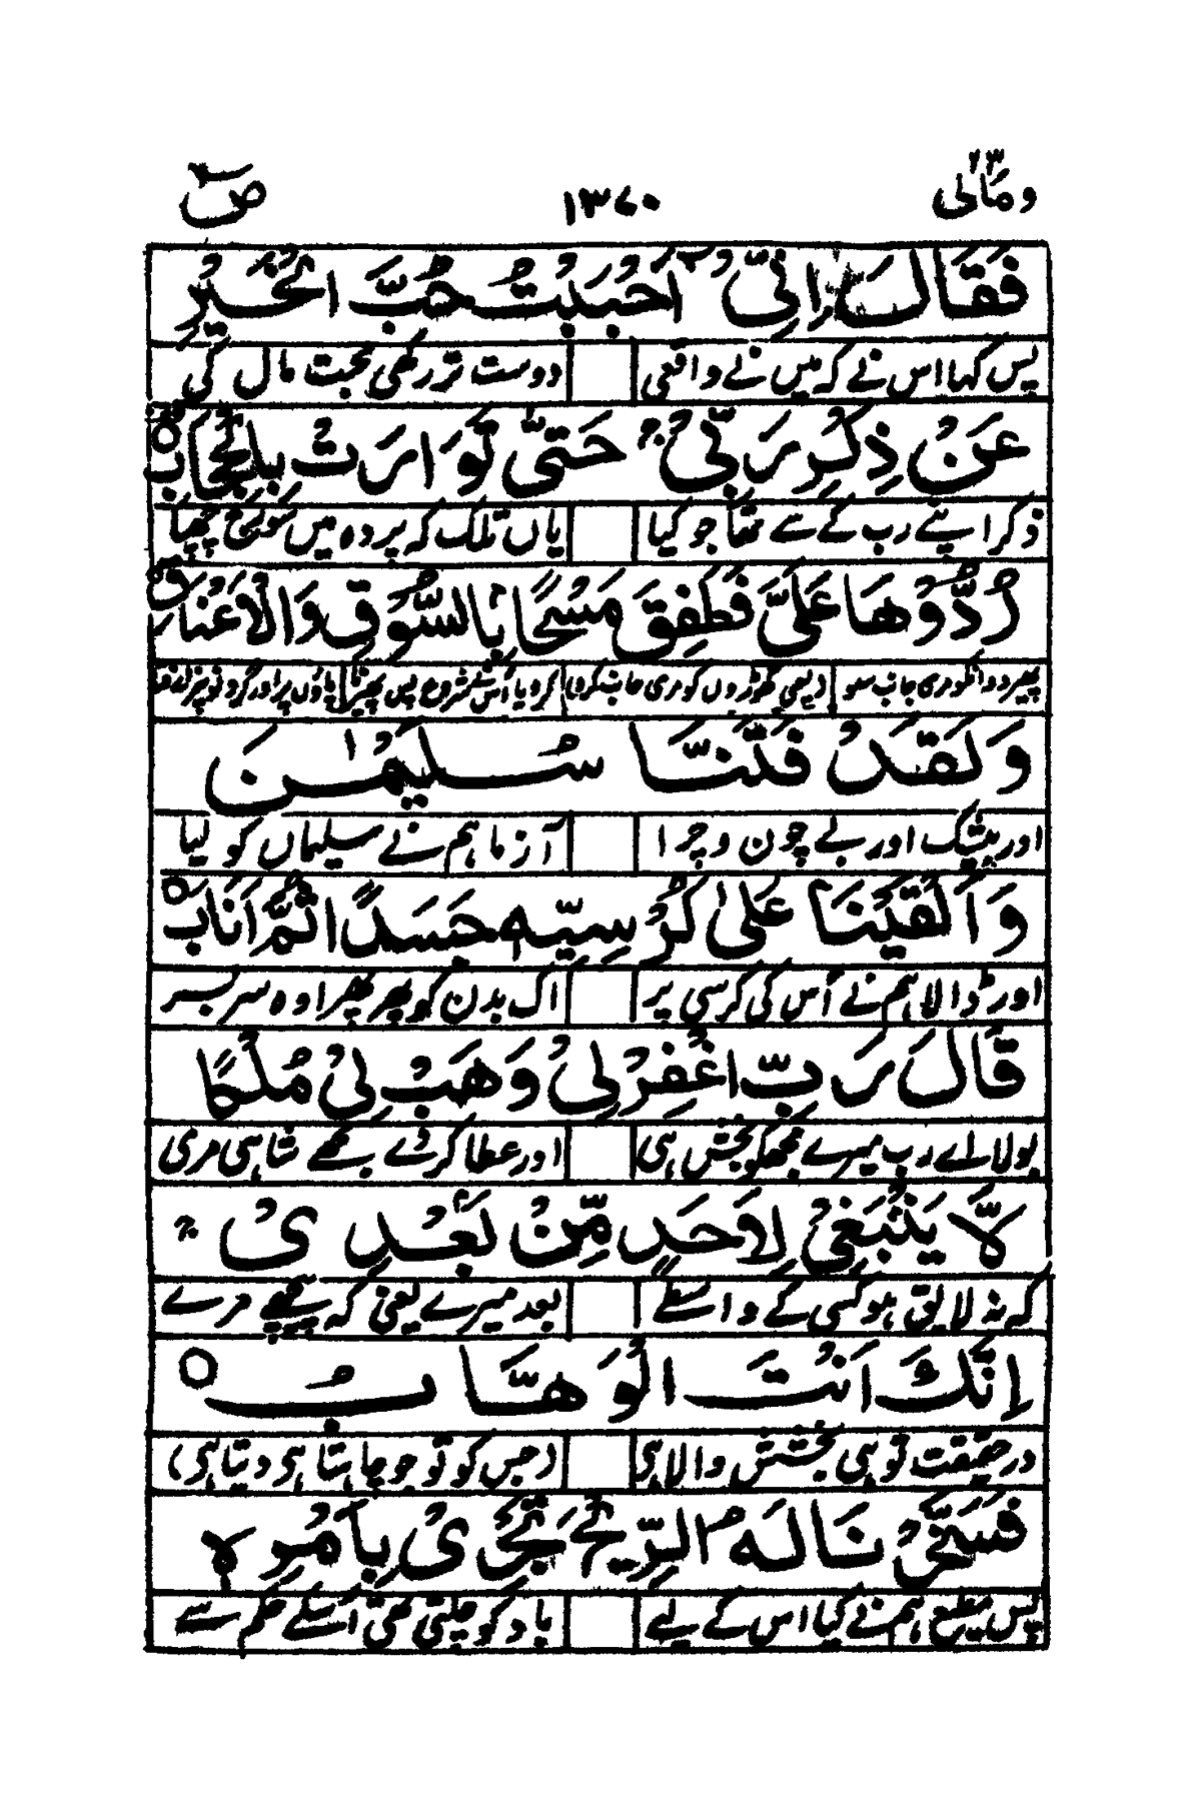 ومالی ٢٣ ١٣٧٠ ص
فَقَالَ اِنِّیْۤ اَحْبَبْتُ حُبَّ الْخَیْرِ
پس کہا اس نے کہ میں نے واقعی دوست تر رکھی محبت مال کی
عَنْ ذِكْرِ رَبِّیْ ۚ حَتّٰی تَوَارَتْ بِالْحِجَابِ
ذکر اپنے رب کے سے تھا جو کیا یاں تلک کہ پردہ میں سورج چھپا
رُدُّوْهَا عَلَیَّ فَطَفِقَ مَسْحًۢا بِالسُّوْقِ وَالْاَعْنَاقِ
پھیر دو انکو مری جانب سو گھوڑوں کو مری جانب کر دیا اس نے شروع پس پھیرنا پاؤں پر اور
وَلَقَدْ فَتَنَّا سُلَیْمٰنَ
اور بیشک اور بے چون و چرا آزما ہم نے سلیماں کو لیا
وَاَلْقَیْنَا عَلٰی كُرْسِیِّهٖ جَسَدًا ثُمَّ اَنَابَ
اور ڈالا ہم نے اُس کی کرسی پر اک بدن کو پھر پھرا وہ سر بسر
قَالَ رَبِّ اغْفِرْ لِیْ وَهَبْ لِیْ مُلْكًا
بولا اے رب میرے مجھکو بخش ہی اور عطا کر دے مجھے شاہی مری
لَّا یَنْۢبَغِیْ لِاَحَدٍ مِّنْۢ بَعْدِیْ ۚ
کہ نہ لایق ہو کسی کے واسطے بعد میرے یعنی کہ پیچھے مرے
اِنَّكَ اَنْتَ الْوَهَّابُ
درحقیقت تو ہی بخشش والا ہی (جس کو تو جو چاہتا ہی دیتا ہی)
فَسَخَّرْنَا لَهُ الرِّیْحَ تَجْرِیْ بِاَمْرِهٖ
پس مطیع ہم نے کیا اس کے لیے باد کو چلتی تھی اُسکے حکم سے